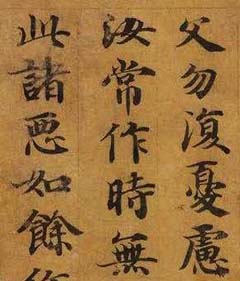 父勿復憂慮
汝常作時無
此諸惡如餘